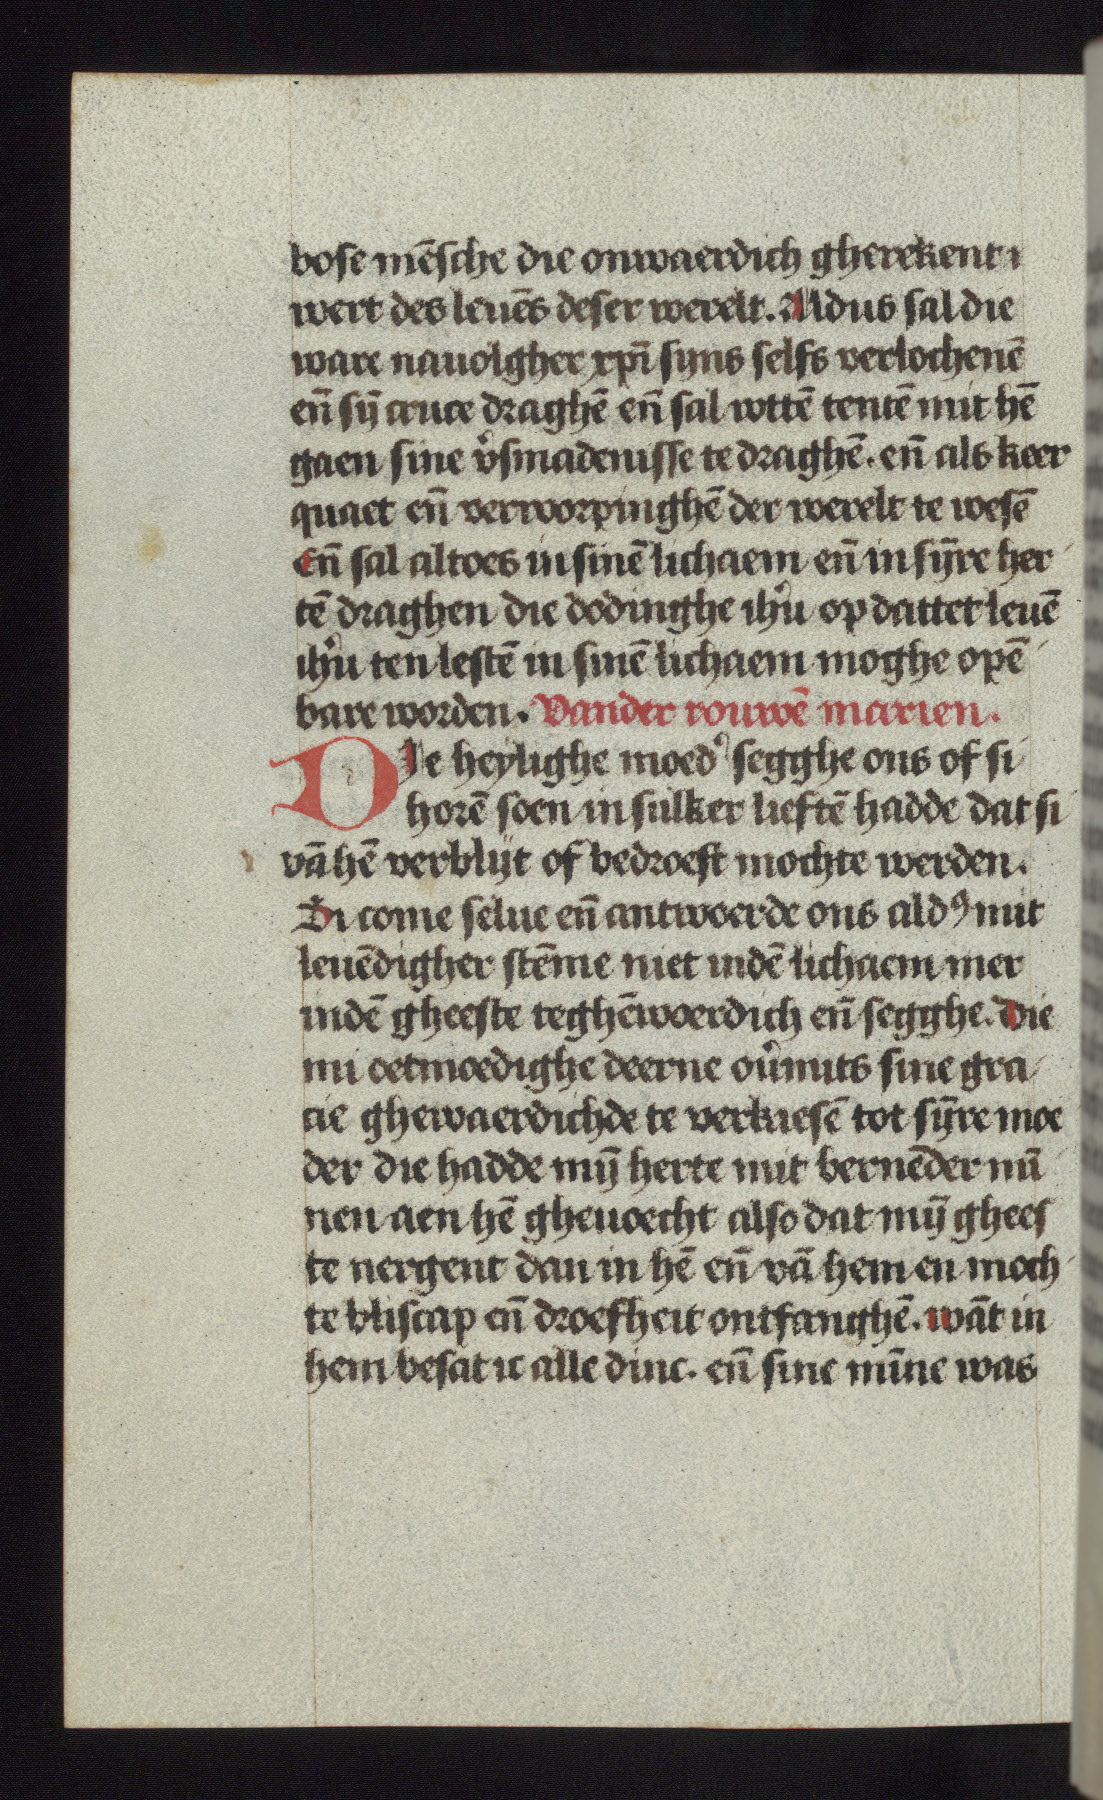 bose mēsche die onwaerdich gherekent
wert des leuēs deser werelt. Aldus sal die
ware nauolgher xpī syns selfs verlochenē
eñ sȳ cruce draghē eñ sal wttē tentē mit hē
gaen sine v̉smadenisse te draghē. eñ als keer
quaet eñ verworpinghē der werelt te wesē
eñ sal altoes in sinē lichaem eñ in sȳre her
tē draghen die dodinghe ihũ op dattet leuē
ihũ ten lestē in sinē lichaem moghe opē
bare worden. Vander rouwē marien.
Die heylighe moed̉ segghe ons of si
horē soen in sulker lieftē hadde dat si
vā hē verblijt of bedroeft mochte werden.
Si come selue eñ antwoerde ons aldꝰ mit
leuēdigher stēme niet indē lichaem mer
indē gheeste teghēwoerdich eñ segghe. Die
mi oetmoedighe deerne oủmits sine gra
cie ghewaerdichde te verkiesē tot sȳre moe
der die hadde mȳ herte mit bernēder mī
nen aen hē gheuoecht also dat mȳ ghees
te nergent dan in hē eñ vā hem en moch
te bliscap eñ droefheit ontfanghē. wāt in
hem besat ic alle dinc. eñ sine mīne was